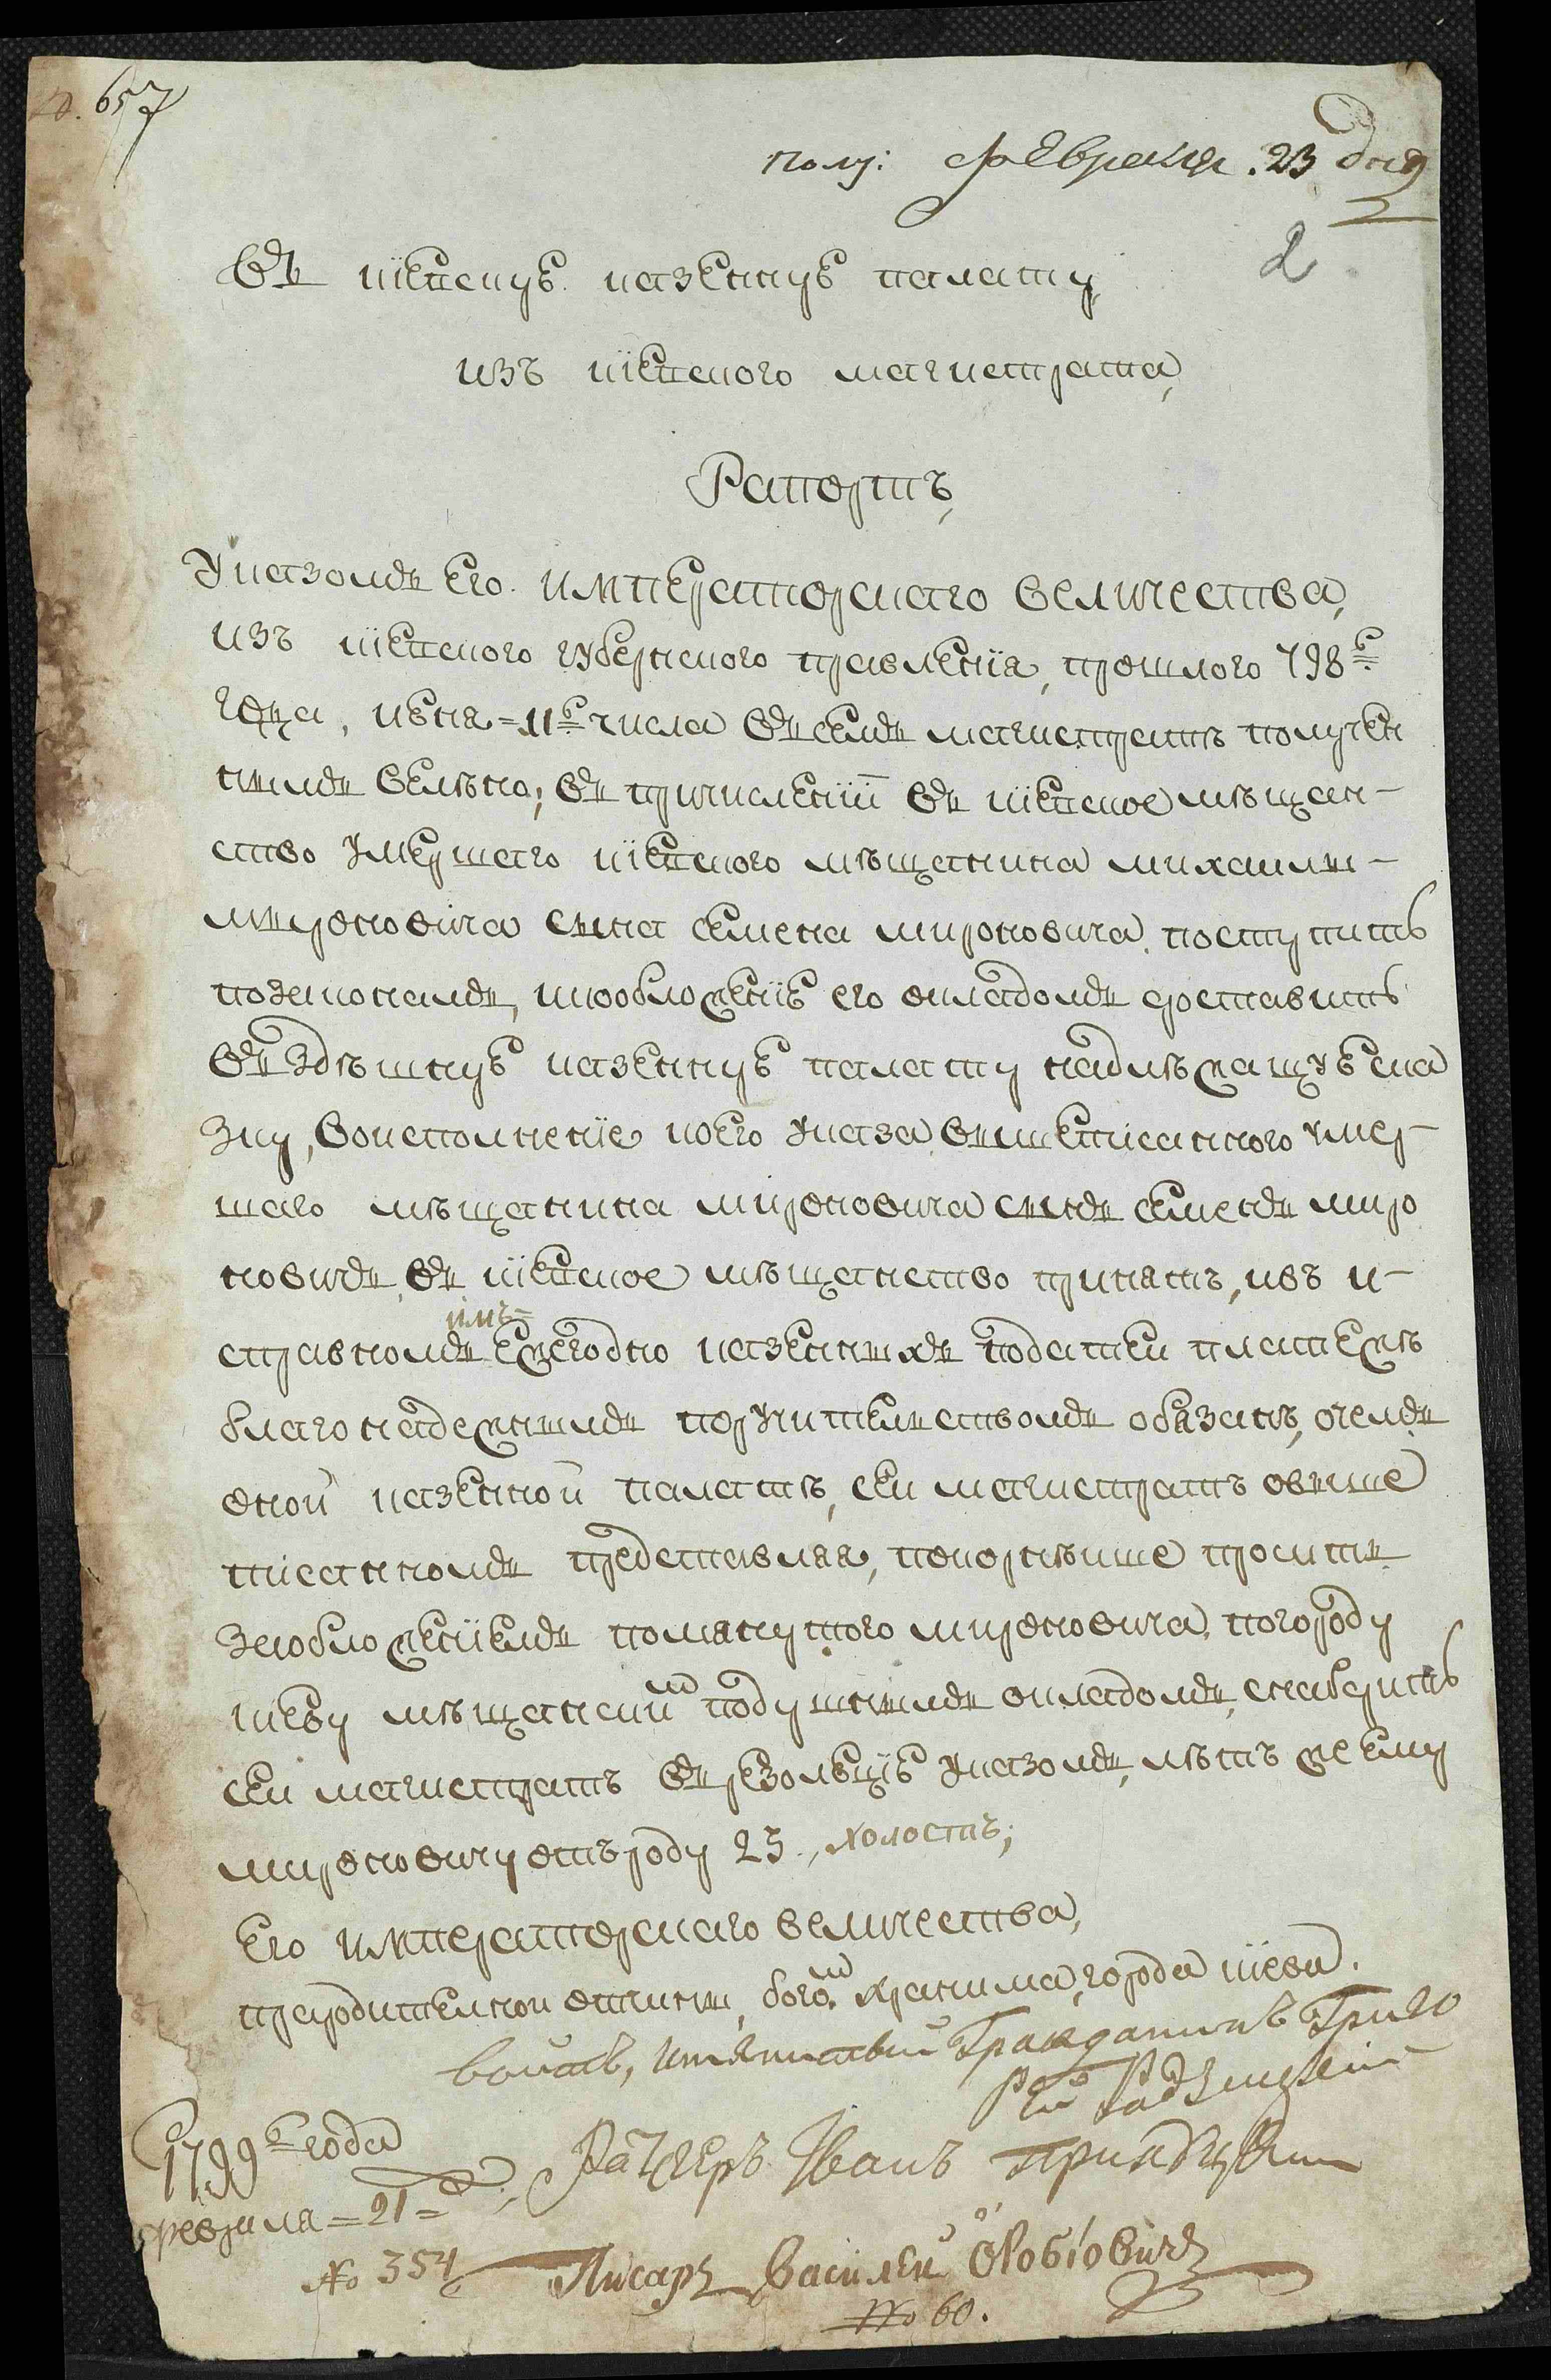 №. 657
полу: февраля. 23 дня
2
Въ кіевскую казенную палату
изъ кіевского магистрата,
Рапортъ,
Указомъ его императорскаго величества,
изъ кіевского губернского правленія, прошлого 798го
года, июня =11го числа въ семъ магистратѣ получен
нымъ велѣно; въ причисленіи въ кіевское мѣщан-
ство умершаго кіевского мѣщанина михаилы-
мироновича сына семена мироновича, поступить
позаконамъ, икообложенію его окладомъ доставить
въ здѣшную казенную палату надлѣжащую ска
зку, воисполненіе коего указа, вышеписанного умер-
шаго мѣщанина мироновича сынъ семенъ миро
новичъ, въ кіевское мѣщанство принятъ, ивъ и-
имъ=
справномъ ежегодно казенныхъ податей платежѣ
благонадежнымъ поручителствомъ обязанъ, очемъ
оной казенной палатѣ, сей магистратъ овыше
писанномъ представляя, покорнѣйше проситъ
заобложеніемъ помянутого мироновича, погороду
кіеву мѣщанскимъ подушнымъ окладомъ, снабдить
сей магистратъ въ резолюцію указомъ, лѣтъ же ему
мироновичу отъроду 25, холостъ;
Его императорскаго величества,
прародителной отчины, богомъ хранима, города кіева.
войтъ, имянитый Гражданинъ Григо
рей
1799го года
февраля =21=
Ратгеръ Иванъ
№ 354
Писарь Василей
№ 60.